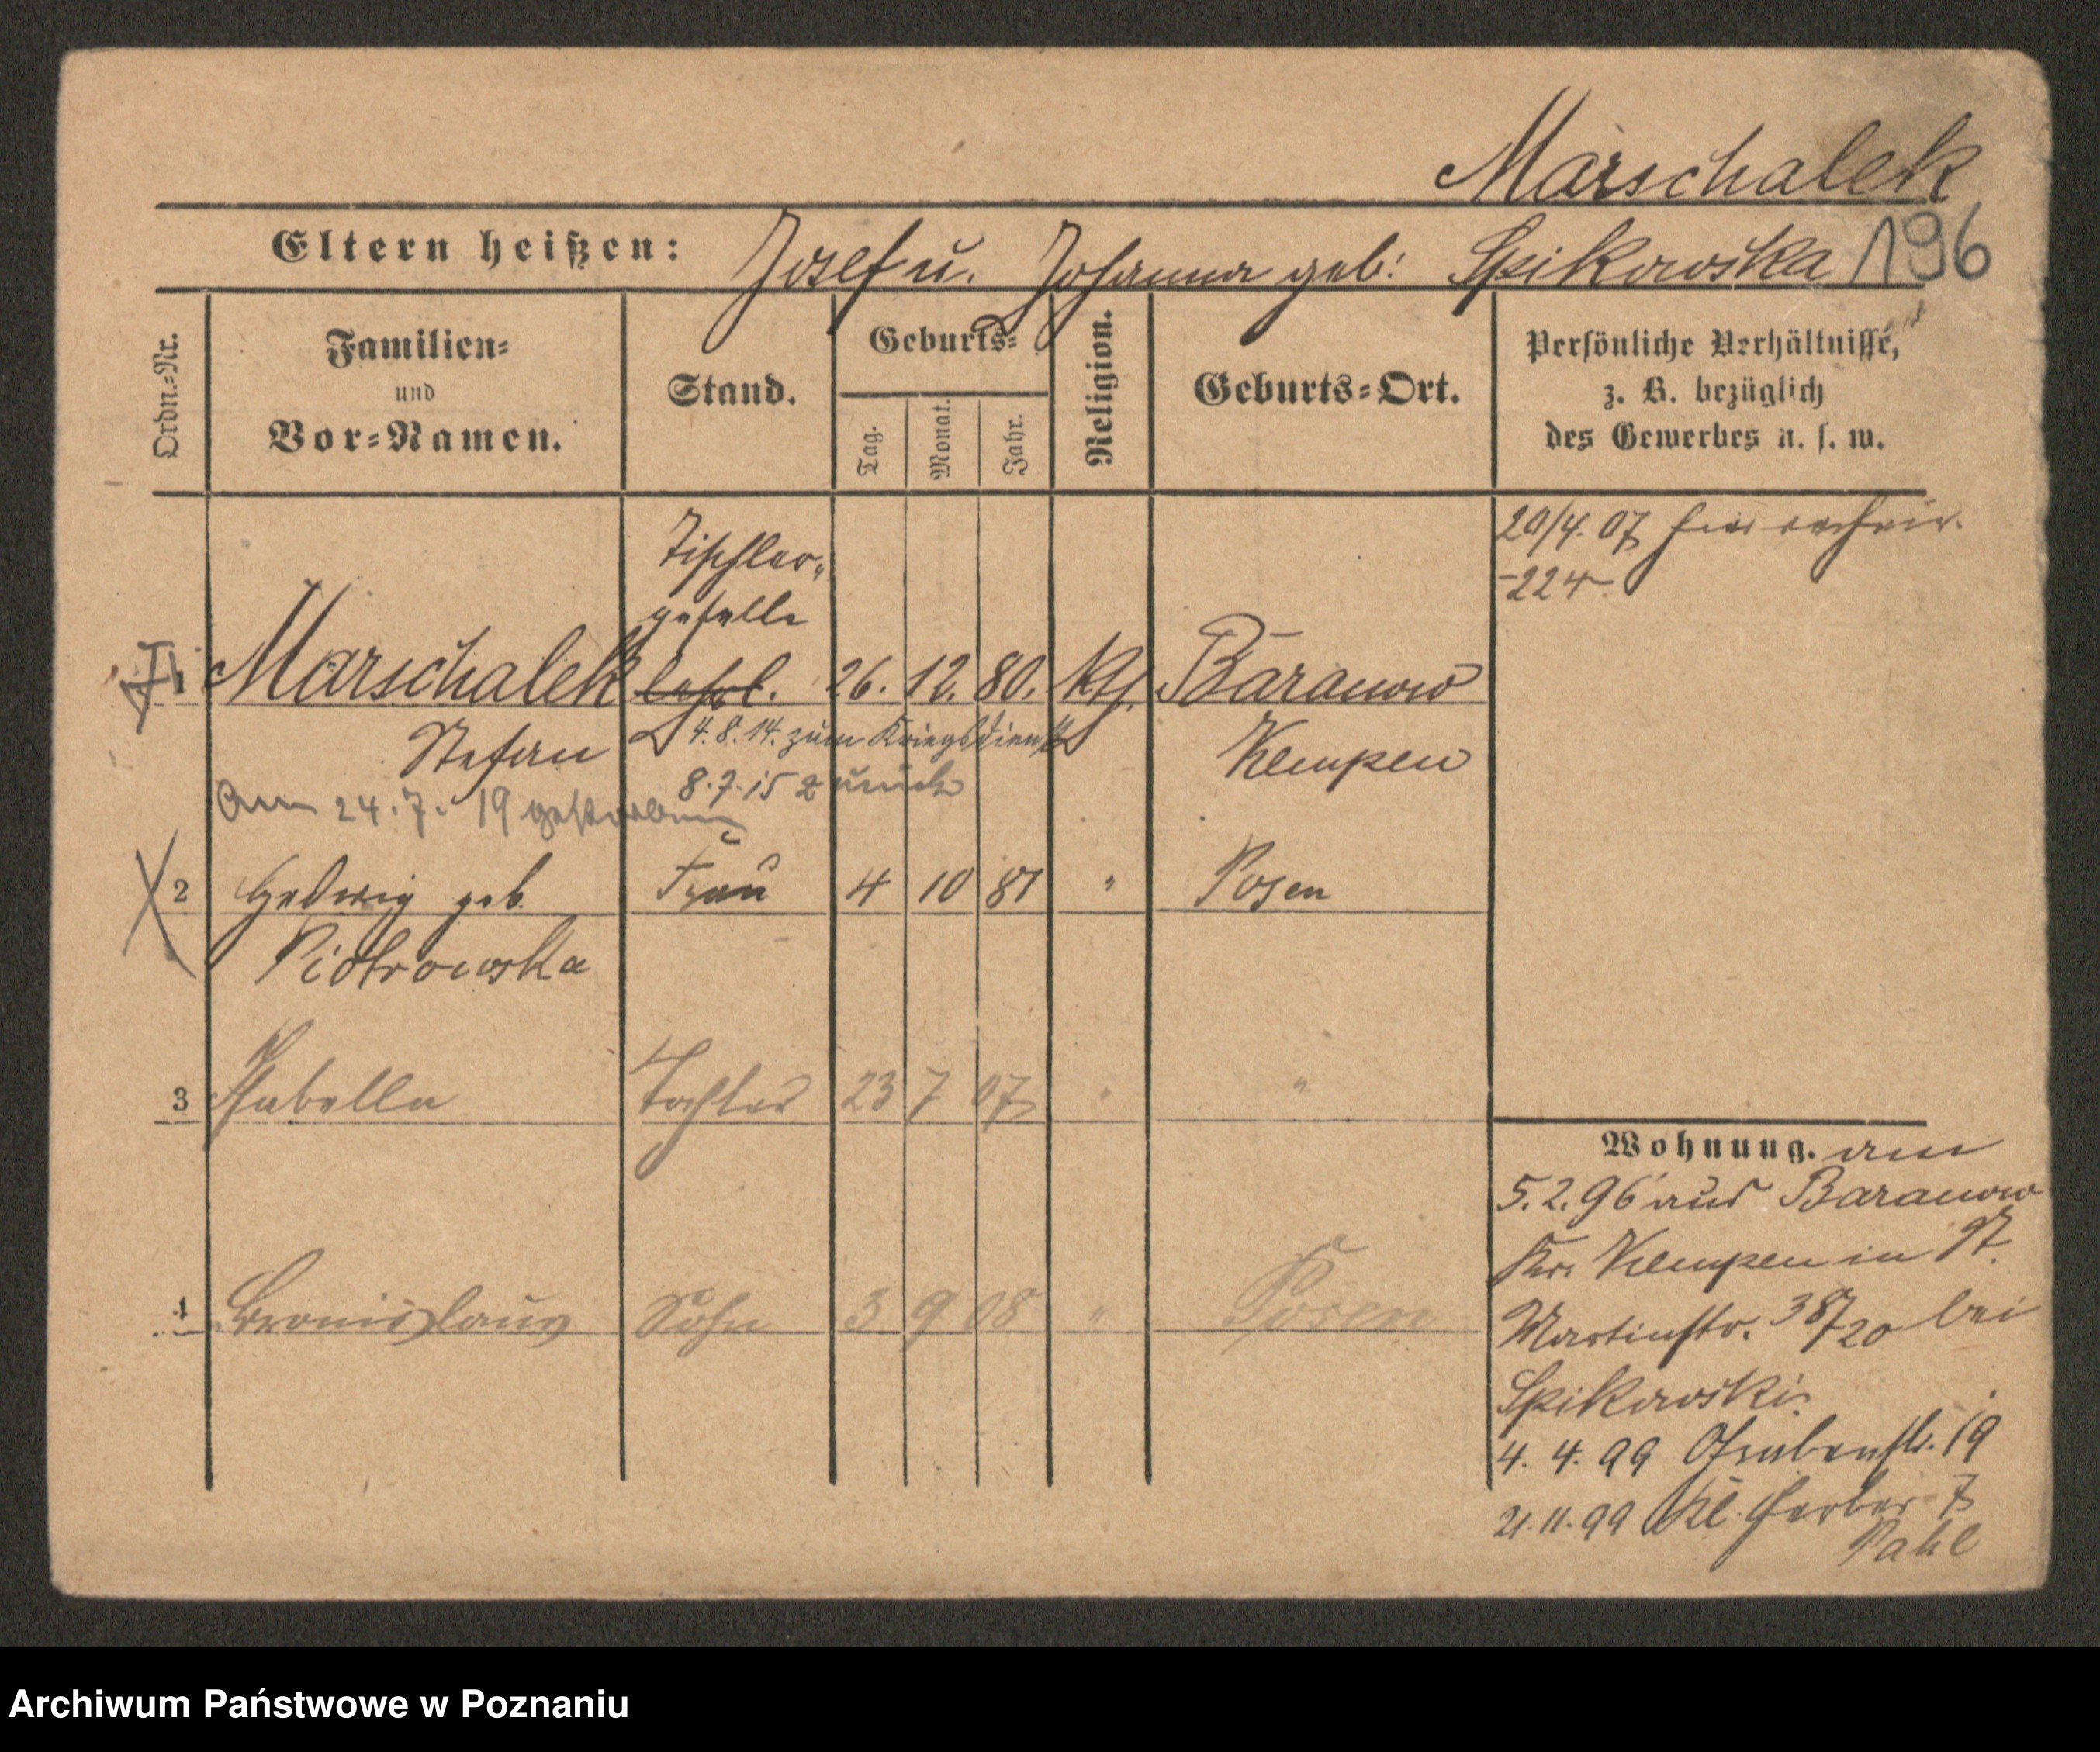 Marschalek
Eltern heißen: Josef u. Johanna geb: Spikowska 196
Ordn.=Nr.
Familien=
und
Vor=Namen.
Stand.
Geburts=
Tag.
Monat.
Jahr.
Religion.
Geburts=Ort.
Persönliche Verhältnisse,
z. B. bezüglich
des Gewerbes u. s. w.
20/4. 07 hier
-224-
Tischler=
geselle
1 Marschalek lehrl. 26. 12. 80. kth. Baranow
Stefan 4.8.14. zum Kriegsdienst Kempen
8.7.15 zurück
Am 24.7.19 gestorben
2 Hedwig geb. Frau 4 10 81 " Posen
Piotrowska
3 Isabella Tochter 23 7 07 " "
4 Bronislaus Sohn 3 9 08 " Posen
Wohnung. am
5.2.96 aus Baranow
Kr. Kempen in St.
Martinstr. 38/20 bei
Spikowski.
4. 4. 99 Grabenstr. 19
21.11.99 Kl. Gerber 7
Pahl
Archiwum Państwowe w Poznaniu